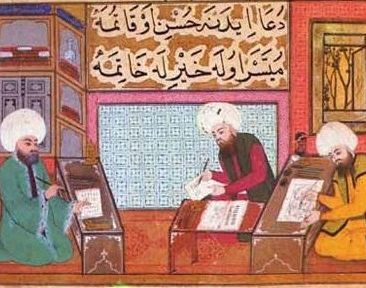 دعا ایدنه حسن
میسر اوله خیرله خاتمه